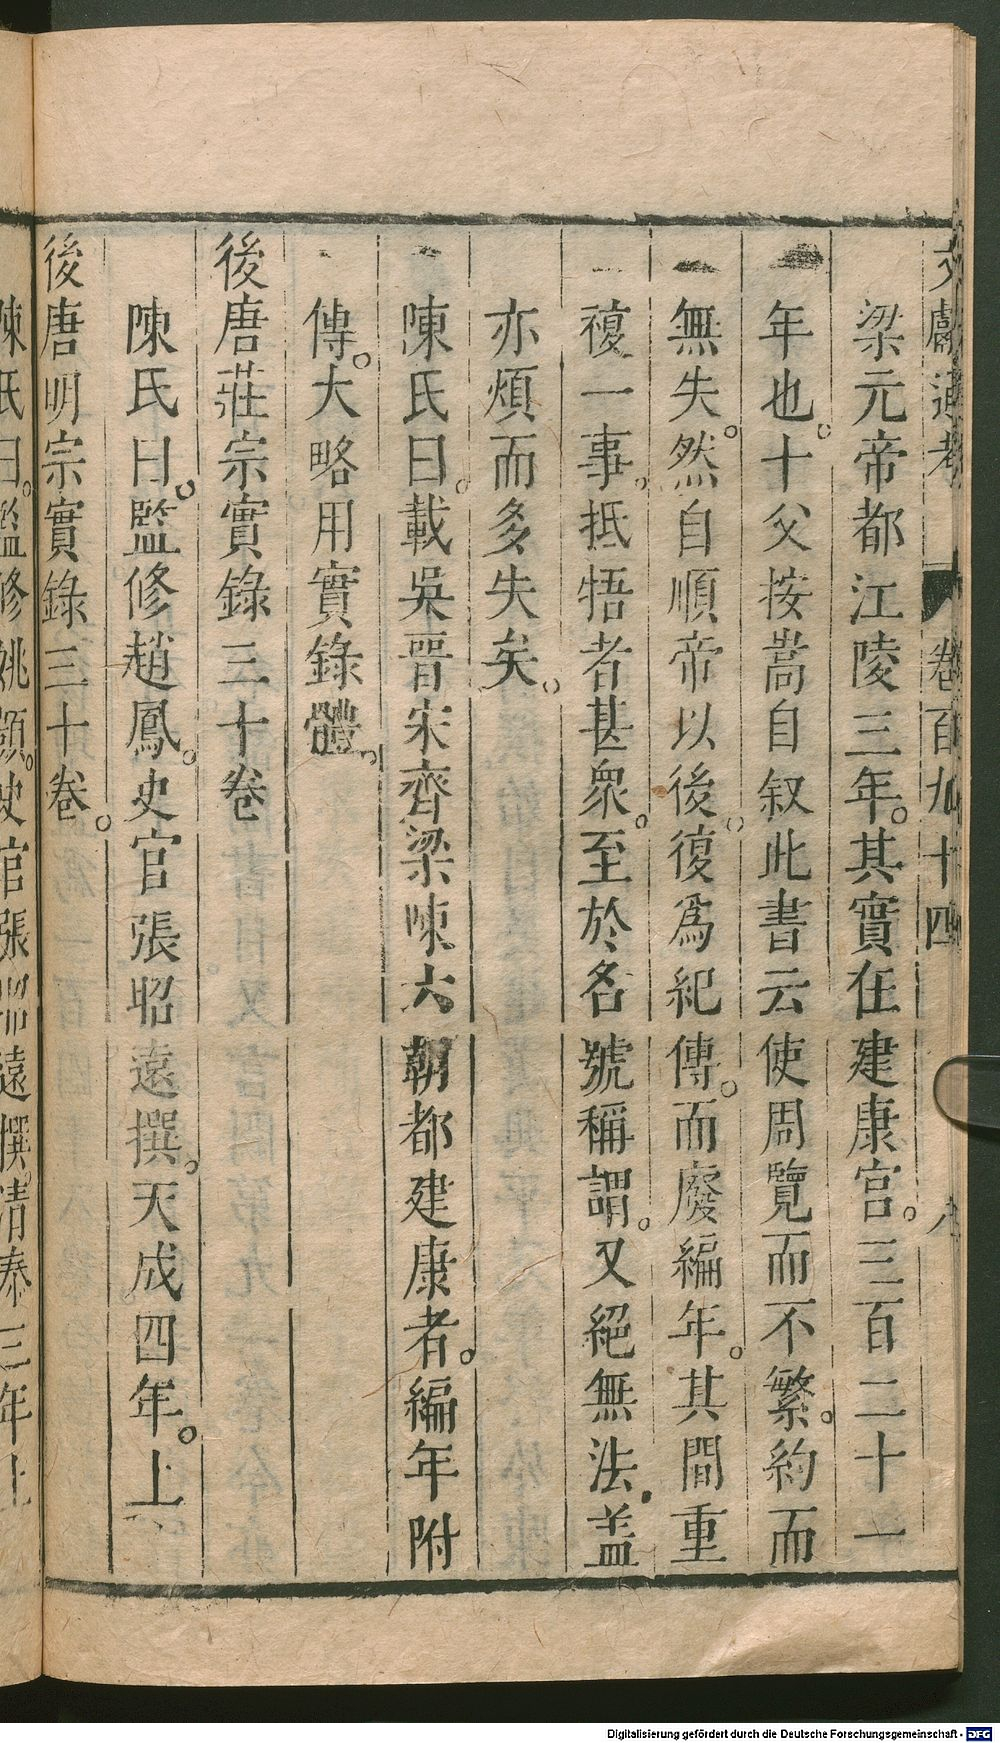 文獻通考 卷百九十四 九
梁元帝都江陵三年。其實在建康宮。三百二十一
年也。十父按嵩自叙此書云使周覽而不繁。約而
無失。然自順帝以後。復爲紀傳。而廢編年。其間重
複一事。抵牾者甚衆。至於名號稱謂。又絕無法。盖
亦煩而多失矣。
陳氏曰。載吳晋宋齊梁陳六朝都建康者。編年附
傳。大略用實錄體。
後唐莊宗實錄三十卷
陳氏曰。監修趙鳳。史官張昭遠撰。天成四年。上
後唐明宗實錄三十卷。
陳氏曰。監修姚顗。史官張昭遠撰。清泰三年上
Digitalisierung gefördert durch die Deutsche Forschungsgemeinschaft - DFG